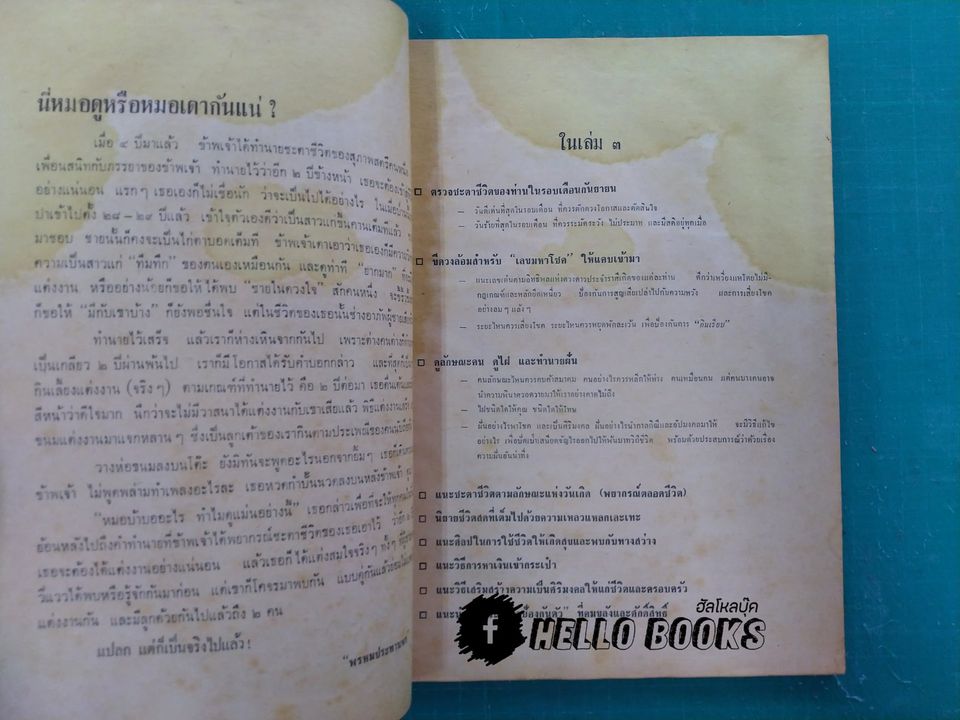 นี่หมอดูหรือหมอเดากันแน่ ?
เมื่อ ๔ ปีมาแล้ว ข้าพเจ้าได้ทำนายชะตาชีวิตของสุภาพสตรีคนหนึ่ง
เพื่อนสนิทกับภรรยาของข้าพเจ้า ทำนายไว้ว่าอีก ๒ ปีข้างหน้า เธอจะต้อง
อย่างแน่นอน แรกๆ เธอเองก็ไม่เชื่อนัก ว่าจะเป็นไปได้อย่างไร ในเมื่อ
ปาเข้าไปตั้ง ๒๘ – ๒๙ ปีแล้ว เข้าใจตัวเองดีว่าเป็นสาวแก่ขึ้นคานเต็มทีแล้ว
มาชอบ ชายนั้นก็คงจะเป็นไก่ตาบอดเต็มที ข้าพเจ้าเดาเอาว่าเธอเองก็มีความ
ความเป็นสาวแก่ “ทึมทึก” ของตนเองเหมือนกัน และดูท่าที “ยากมาก”
แต่งงาน หรืออย่างน้อยก็ขอให้ได้พบ “ชายในดวงใจ” สักคนหนึ่ง
ก็ขอให้ “มีกับเขาบ้าง” ก็ยังพอชื่นใจ แต่ในชีวิตของเธอนั้นช่างอาภัพผู้ชาย
ทำนายไว้เสร็จ แล้วเราก็ห่างเหินจากกันไป เพราะต่างคน
เป็นเกลียว ๒ ปีผ่านพ้นไป เราก็มีโอกาสได้รับคำบอกกล่าว
กินเลี้ยงแต่งงาน (จริงๆ) ตามเกณฑ์ที่ทำนายไว้ คือ ๒ ปีต่อมา
สีหน้าว่าดีใจมาก นึกว่าจะไม่มีวาสนาได้แต่งงานกับเขาเสียแล้ว
ขนมแต่งงานมาแจกหลานๆ ซึ่งเป็นลูกเต้าของเรากินตามประเพณีของคน
วางห่อขนมลงบนโต๊ะ ยังมิทันจะพูดอะไรนอกจากยิ้มๆ
ข้าพเจ้า ไม่พูดพล่ามทำเพลงอะไรละ เธอหวดกำปั้นนวดลงบนหลังข้าพเจ้า
“หมอบ้าบออะไร ทำไมดูแม่นอย่างนี้” เธอกล่าวเพื่อที่จะให้ทุกคน
ย้อนหลังไปถึงคำทำนายที่ข้าพเจ้าได้พยากรณ์ชะตาชีวิตของเธอเอาไว้
เธอจะต้องได้แต่งงานอย่างแน่นอน แล้วเธอก็ได้แต่งสมใจจริงๆ
วี่แววได้พบหรือรู้จักกันมาก่อน แต่เขาก็โคจรมาพบกัน
แต่งงานกัน และมีลูกด้วยกันไปแล้วถึง ๒ คน
แปลก แต่ก็เป็นจริงไปแล้ว !
ในเล่ม ๓
ตรวจชะตาชีวิตของท่านในรอบเดือนกันยายน
– วันดีเด่นที่สุดในรอบเดือน ที่ควรตักตวงโอกาสและตัดสินใจ
– วันร้ายที่สุดในรอบเดือน ที่ควรระมัดระวัง ไม่ประมาท และมีสติอยู่ทุกเมื่อ
ขีดวงล้อมสำหรับ “เลขมหาโชค” ให้แคบเข้ามา
– แนะเลขเด่นด้วยอิทธิพลแห่งดวงดาวประจำราศีเกิดของแต่ละท่าน ดีกว่าเหวี่ยงแหโดยไม่มี-
กฎเกณฑ์และหลักยึดเหนี่ยว ป้องกันการสูญเสียเปล่าไปกับความหวัง และการเสี่ยงโชค
อย่างลมๆ แล้งๆ
– ระยะไหนควรเสี่ยงโชค ระยะไหนควรหยุดพักสะเว้น เพื่อป้องกันการ “กินเรียบ”
ดูลักษณะคน ดูไฝ และทำนายฝัน
– คนลักษณะไหนควรคบค้าสมาคม คนอย่างไรควรหลีกให้ห่าง คนเหมือนคน แต่คนบางคนอาจ
นำความพินาศวอดวายมาให้เราอย่างคาดไม่ถึง
– ไฝชนิดใดให้คุณ ชนิดใดให้โทษ
– ฝันอย่างไรพาโชค และเป็นศิริมงคล ฝันอย่างไรนำกาลกิณีและอัปมงคลมาให้ จะมีวิธีแก้ไข
อย่างไร เพื่อปัดเป่าเสนียดจัญไรออกไปให้พ้นบาทวิถีชีวิต พร้อมด้วยประสบการณ์ว่าด้วยเรื่อง
ความฝันอันน่าทึ่ง
แนะชะตาชีวิตตามลักษณะแห่งวันเกิด (พยากรณ์ตลอดชีวิต)
นิยายชีวิตสดที่เต็มไปด้วยความเหลวแหลกเละเทะ
แนะศิลปในการใช้ชีวิตให้เกิดสุขและพบกับทางสว่าง
แนะวิธีการหาเงินเข้ากระเป๋า
แนะวิธีเสริมสร้างความเป็นศิริมงคลให้แก่ชีวิตและครอบครัว
ที่คมขลังและศักดิ์สิทธิ์
ฮัลโหลบุ๊ค
f HELLO BOOKS